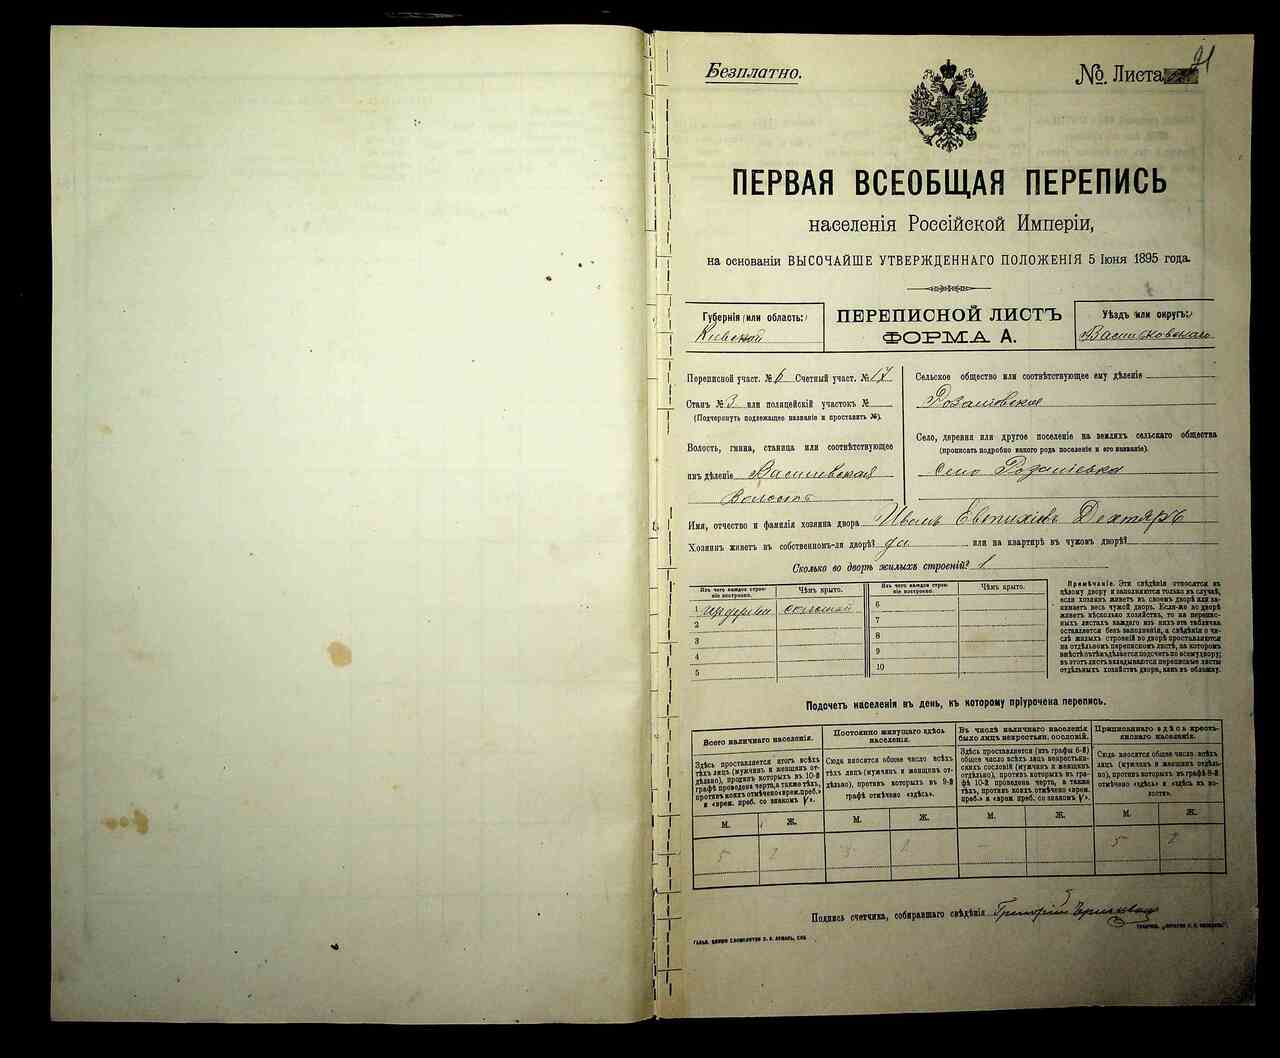 Безплатно.
№. Листа 21
ПЕРВАЯ ВСЕОБЩАЯ ПЕРЕПИСЬ
населенія Россійской Имперіи,
на основаніи ВЫСОЧАЙШЕ УТВЕРЖДЕННАГО ПОЛОЖЕНІЯ 5 Іюня 1895 года.
Губернія (или область:)
Кіевской
ПЕРЕПИСНОЙ ЛИСТЪ
ФОРМА А.
Уѣздъ (или округъ:)
Васильковскаго
Переписной участ. № 6 Счетный участ. № 17
Станъ № 3 или полицейскій участокъ №
(Подчеркнуть подлежащее названіе и проставить №).
Волость, гмина, станица или соотвѣтствующее
имъ дѣленіе
Волость
Сельское общество или соотвѣтствующее ему дѣленіе
Село, деревня или другое поселеніе на земляхъ сельскаго общества
(прописать подробно какого рода поселеніе и его названіе).
село
Имя, отчество и фамилія хозяина двора Иванъ Евтихіевъ Дехтяръ
Хозяинъ живетъ въ собственномъ-ли дворѣ? да или на квартирѣ въ чужомъ дворѣ?
Сколько во дворѣ жилыхъ строеній? 1
Изъ чего каждое строеніе построено.
Чѣмъ крыто.
Изъ чего каждое строеніе построено.
Чѣмъ крыто.
1 соломой
2
3
4
5
6
7
8
9
10
Примѣчаніе. Эти свѣдѣнія относятся къ
цѣлому двору и заполняются только въ случаѣ,
если хозяинъ живетъ въ своемъ дворѣ или занимаетъ
весь чужой дворъ. Если-же во дворѣ
живетъ нѣсколько хозяйствъ, то на переписныхъ
листахъ каждаго изъ нихъ эта табличка
оставляется безъ заполненія, а свѣдѣнія о числѣ
жилыхъ строеній во дворѣ проставляются
на отдѣльномъ переписномъ листѣ, на которомъ
вмѣстѣ съ тѣмъ дѣлается подсчетъ по всему двору;
въ этотъ листъ вкладываются переписные листы
отдѣльныхъ хозяйствъ двора, какъ въ обложку.
Подсчетъ населенія въ день, къ которому пріурочена перепись.
Всего наличнаго населенія.
Здѣсь проставляется итогъ всѣхъ
тѣхъ лицъ (мужчинъ и женщинъ отдѣльно),
противъ которыхъ въ 10-й
графѣ проведена черта, а также тѣхъ,
противъ коихъ отмѣчено «врем. преб.»
и «врем. преб. со знакомъ V».
Постоянно живущаго здѣсь
населенія.
Сюда вносится общее число всѣхъ
тѣхъ лицъ (мужчинъ и женщинъ отдѣльно),
противъ которыхъ въ 9-й
графѣ отмѣчено «здѣсь».
Въ числѣ наличнаго населенія
было лицъ некрестьян. сословій.
Здѣсь проставляется (изъ графы 6-й)
общее число всѣхъ лицъ некрестьянскихъ
сословій (мужчинъ и женщинъ
отдѣльно), противъ которыхъ въ графѣ
10-й проведена черта, а также
тѣхъ, противъ коихъ отмѣчено «врем.
преб.» и «врем. преб. со знакомъ V».
Приписаннаго здѣсь крестьянскаго
населенія.
Сюда вносится общее число всѣхъ
лицъ (мужчинъ и женщинъ отдѣльно),
противъ которыхъ въ графѣ 8-й
отмѣчено «здѣсь» и «здѣсь въ волости».
М. Ж. М. Ж. М. Ж. М. Ж.
5 2 5 2 – 5 2
Подпись счетчика, собиравшаго свѣдѣнія Григорій